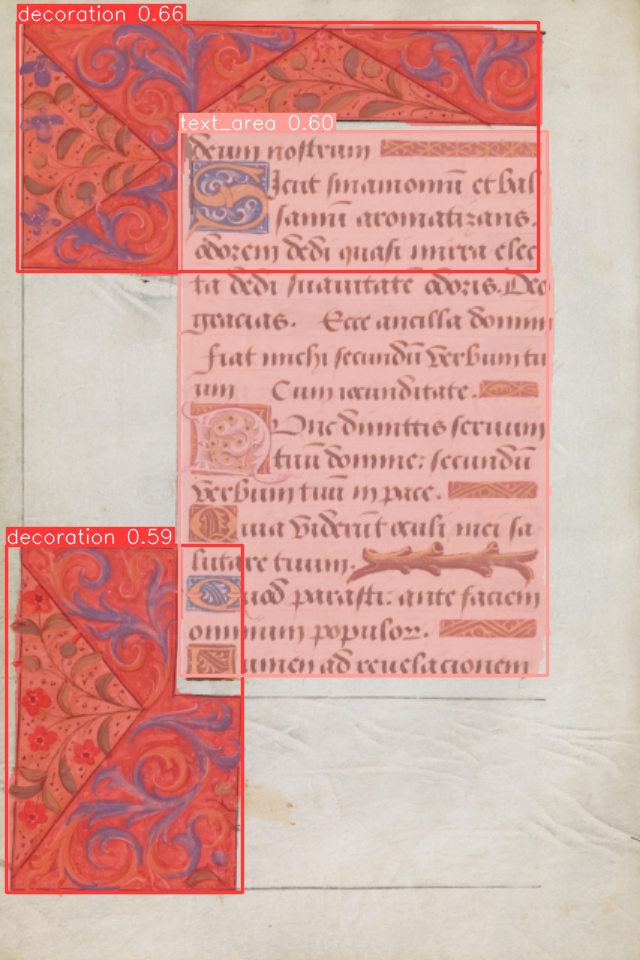 decoration 0.66
text_area 0.60
deum nostrum
Sicut sinamomū et bal
samū aromatizans.
odorem dedi quasi mirra elec
ta dedi suauitate odoris. Deo
gracias. Ecce ancilla domini
fiat michi secundū verbum tu
um Cum iocunditate.
Nunc dimittis seruum
tuū domine: secundū
verbum tuū in pace.
Quia viderūt oculi mei sa
lutare tuum.
Quod parasti: ante faciem
omnium populoꝝ.
Lumen ad reuelacionem
decoration 0.59